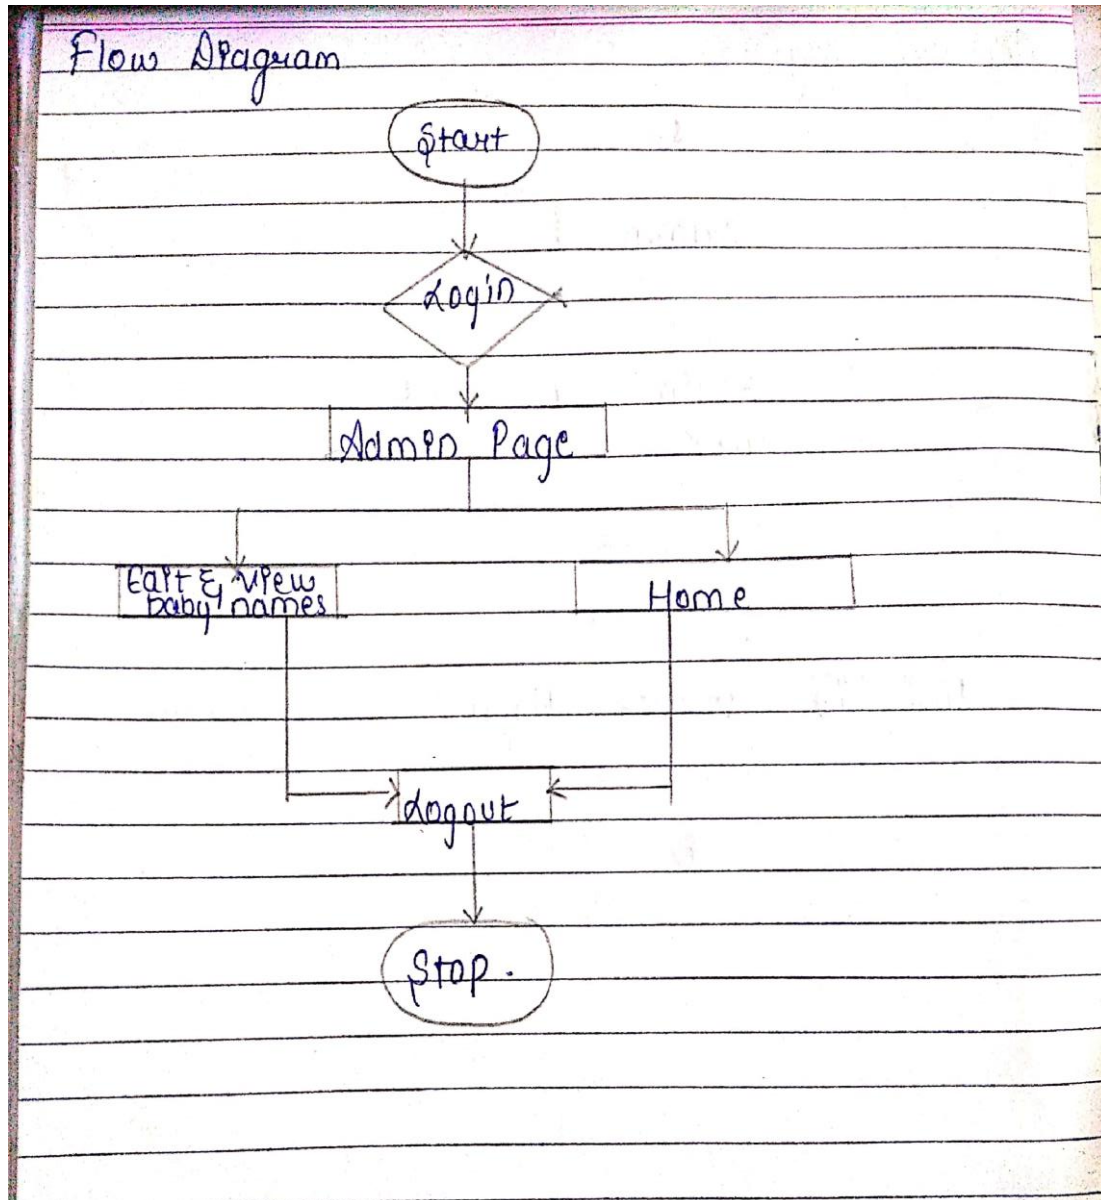 Flow Diagram
Start
Login
Admin Page
Edit & View
baby names
Home
Logout
Stop.